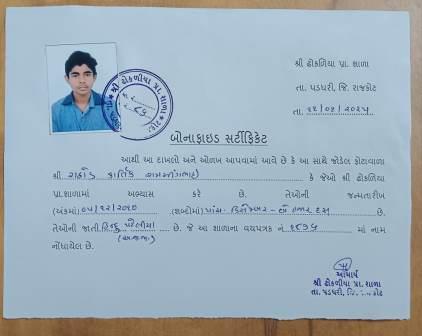 શ્રી ઢોકળિયા પ્રા. શાળા
તા. પડધરી, જિ. રાજકોટ
તા.
શ્રી ઢોકળીયા પ્રા. શાળા
બોનાફાઇડ સર્ટીફિકેટ
આથી આ દાખલો અને ઓળખ આપવામાં આવે છે કે આ સાથે જોડેલ ફોટાવાળા
શ્રી રાઠોડ કાર્તિક કે જેઓ શ્રી ઢોકળિયા
પ્રા.શાળામાં અભ્યાસ કરે છે. તેઓની જન્મતારીખ
(અંકમાં) ૦૫/૧૨/૨૦૧૦ (શબ્દોમાં) પાંચ ડિસેમ્બર - બે હજાર દસ છે.
તેઓની જાતી હિન્દુ છે. જે આ શાળાના વયપત્રક નં. માં નામ
નોંધાયેલ છે.
આચાર્ય
શ્રી ઢોકળીયા પ્રા. શાળા
તા. પડધરી,